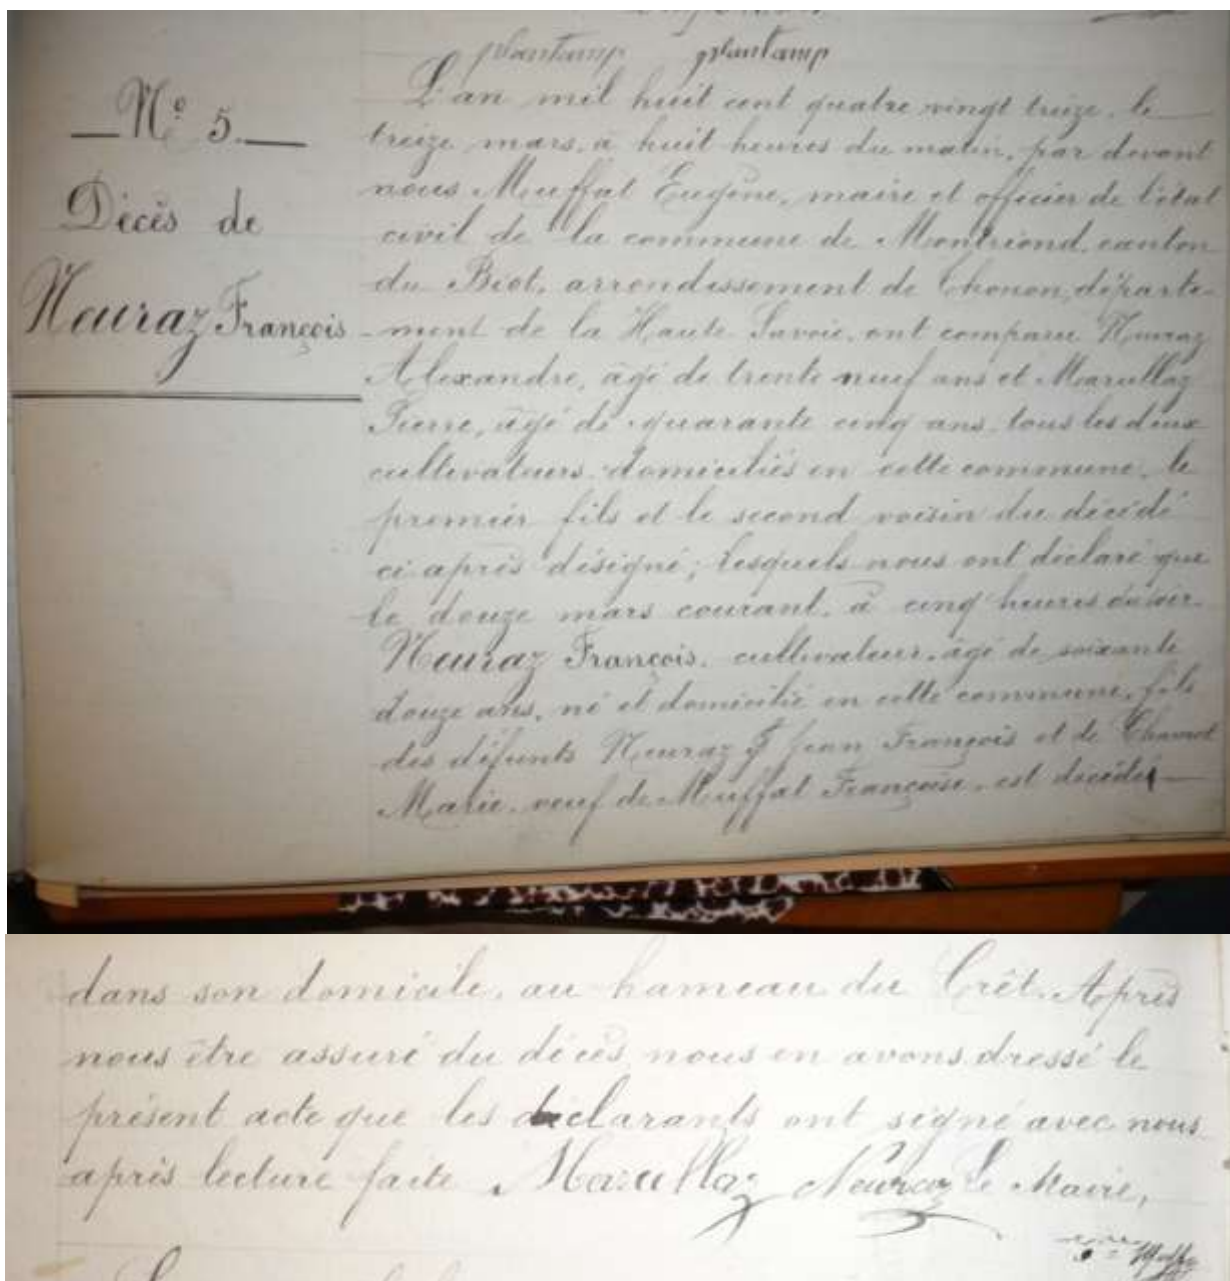 plantamp plantamp
N° 5.
Décès de
Neuraz François
L'an mil huit cent quatre vingt treize, le
treize mars, à huit heures du matin, par devant
nous Muffat Eugène, maire et officier de l'état
civil de la commune de Montriond, canton
du Biot, arrondissement de Thonon, départe-
ment de la Haute Savoie, ont comparu Neuraz
Alexandre, âgé de trente neuf ans et Marullaz
Pierre, âgé de quarante cinq ans, tous les deux
cultivateurs, domiciliés en cette commune, le
premier fils et le second voisin du décédé
ci-après désigné; lesquels nous ont déclaré que
le douze mars courant, à cinq heures du soir,
Neuraz François, cultivateur, âgé de soixante
douze ans, né et domicilié en cette commune, fils
des défunts Neuraz Jean François et de Chavnot
Marie, veuf de Muffat Françoise, est décédé
dans son domicile, au hameau du Crêt. Après
nous être assuré du décès, nous en avons dressé le
présent acte que les déclarants ont signé avec nous
après lecture faite Marullaz Neuraz Le Maire,